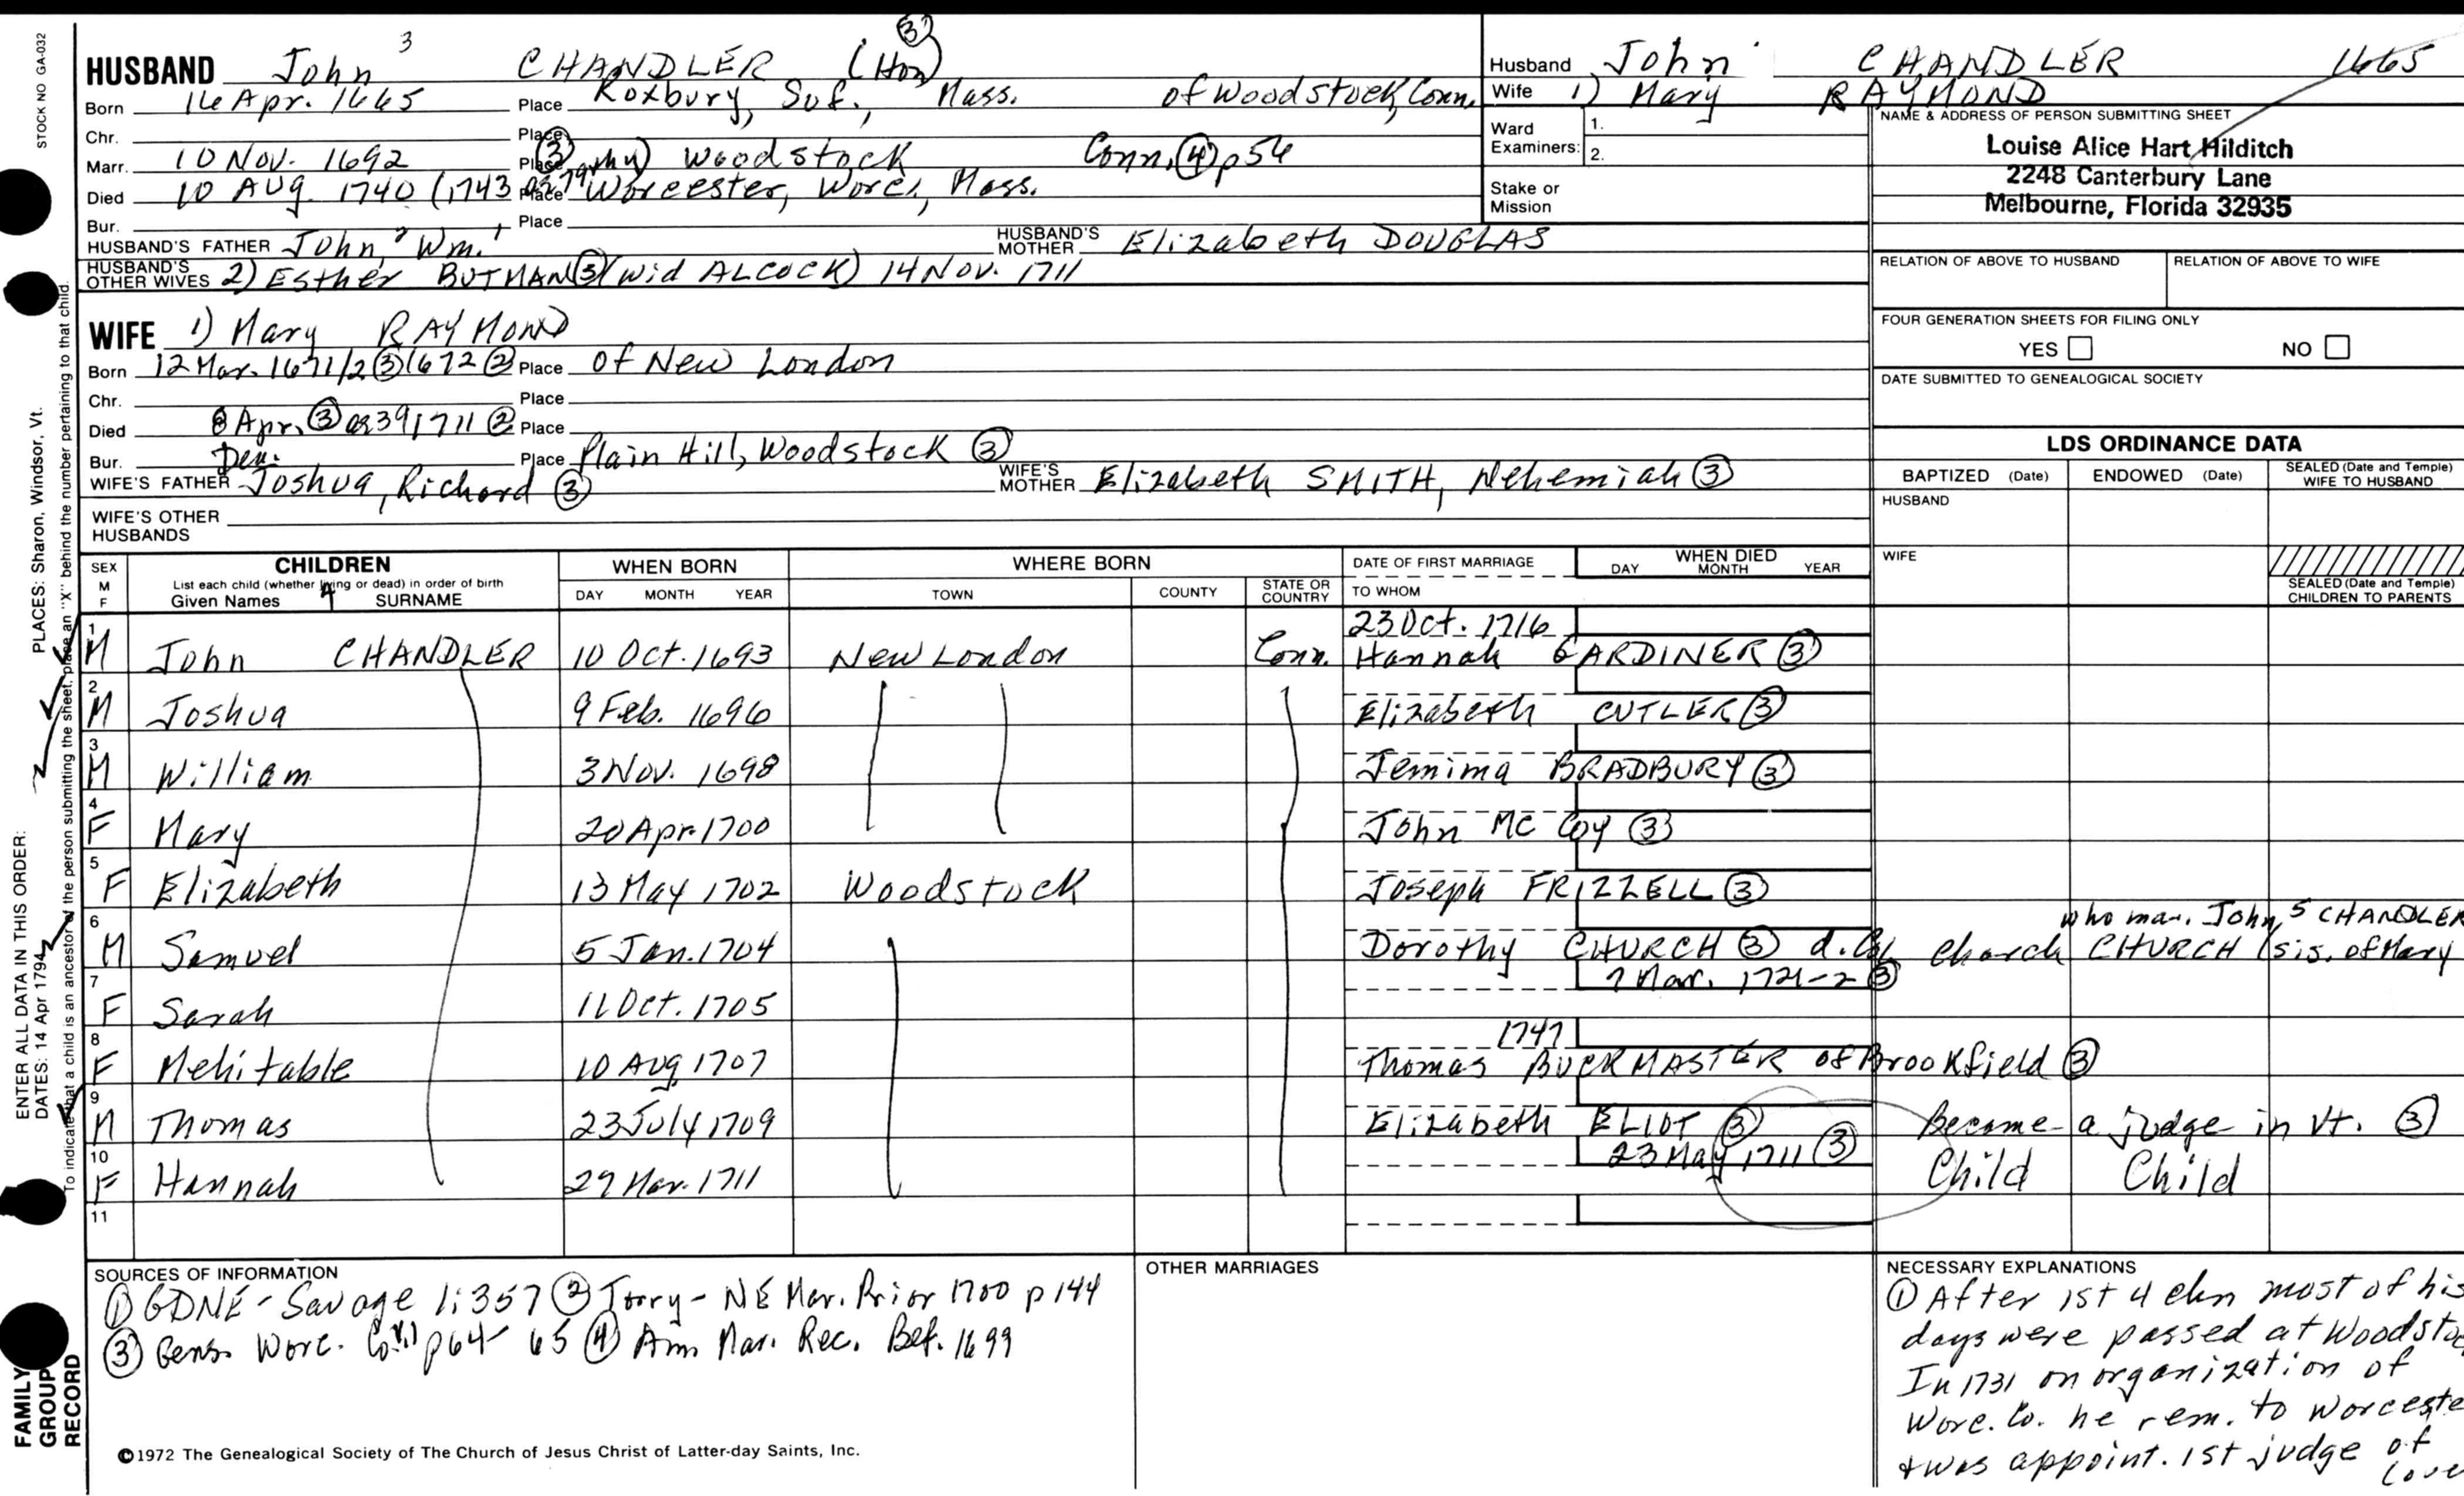 STOCK NO GA-032
PLACES: Sharon, Windsor, Vt.
ENTER ALL DATA IN THIS ORDER:
DATES: 14 Apr 1794
To indicate that a child is an ancestor of the person submitting the sheet, place an "X" behind the number pertaining to that child.
FAMILY GROUP RECORD
HUSBAND John 3 CHANDLER (Hon) ③
Born 16 Apr. 1665 Place Roxbury, Suf., Mass. of Woodstock, Conn.
Chr. Place
Marr. 10 Nov. 1692 Place ③ Woodstock Conn. ④ p 56
Died 10 Aug. 1740 (1743 Place Worcester, Worc., Mass.
Bur. Place
HUSBAND'S FATHER John, 2 Wm. 1 HUSBAND'S MOTHER Elizabeth DOUGLAS
HUSBAND'S OTHER WIVES 2) Esther BUTMAN ③ (wid ALCOCK) 14 Nov. 1711
WIFE 1) Mary RAYMOND
Born 12 Mar. 1671/2 ③ 1672 ② Place of New London
Chr. Place
Died 8 Apr. ③ 1711 ② Place
Bur. Place Plain Hill, Woodstock ③
WIFE'S FATHER Dea. Joshua, Richard ③ WIFE'S MOTHER Elizabeth SMITH, Nehemiah ③
WIFE'S OTHER HUSBANDS
Husband John CHANDLER 1665
Wife 1) Mary RAYMOND
Ward Examiners: 1.
2.
Stake or Mission
NAME & ADDRESS OF PERSON SUBMITTING SHEET
Louise Alice Hart Hilditch
2248 Canterbury Lane
Melbourne, Florida 32935
RELATION OF ABOVE TO HUSBAND RELATION OF ABOVE TO WIFE
FOUR GENERATION SHEETS FOR FILING ONLY
YES NO
DATE SUBMITTED TO GENEALOGICAL SOCIETY
LDS ORDINANCE DATA
BAPTIZED (Date) ENDOWED (Date) SEALED (Date and Temple) WIFE TO HUSBAND
HUSBAND
WIFE
SEALED (Date and Temple) CHILDREN TO PARENTS
SEX M F CHILDREN WHEN BORN WHERE BORN DATE OF FIRST MARRIAGE WHEN DIED
List each child (whether living or dead) in order of birth DAY MONTH YEAR
Given Names 4 SURNAME DAY MONTH YEAR TOWN COUNTY STATE OR COUNTRY TO WHOM
23 Oct. 1716
1 M John CHANDLER 10 Oct. 1693 New London Conn. Hannah GARDINER ③
2 M Joshua 9 Feb. 1696 Elizabeth CUTLER ③
3 M William 3 Nov. 1698 Jemima BRADBURY ③
4 F Mary 20 Apr. 1700 John Mc Coy ③
5 F Elizabeth 13 May 1702 Woodstock Joseph FRIZZELL ③
who mar. John, 5 CHANDLER
6 M Samuel 5 Jan. 1704 Dorothy CHURCH ③ d. Col. Church CHURCH (sis. of Mary
7 Mar. 1721-2 ③
7 F Sarah 11 Oct. 1705
1747
8 F Mehitable 10 Aug 1707 Thomas BUCKMASTER of Brookfield ③
9 M Thomas 23 July 1709 Elizabeth ELIOT ③ Became a judge in Vt. ③
23 May 1711 ③
10 F Hannah 27 Mar. 1711 Child Child
11
SOURCES OF INFORMATION
① GDNE - Savage 1:357 ② Torry - NE Mar. Prior 1700 p 144
③ Gens. Worc. Co. p 64-65 ④ Am. Mar. Rec. Bef. 1699
OTHER MARRIAGES
NECESSARY EXPLANATIONS
① After 1st 4 chn most of his
days were passed at Woodstoc
In 1731 on organization of
Worc. Co. he rem. to Worceste
& was appoint. 1st judge of
©1972 The Genealogical Society of The Church of Jesus Christ of Latter-day Saints, Inc.